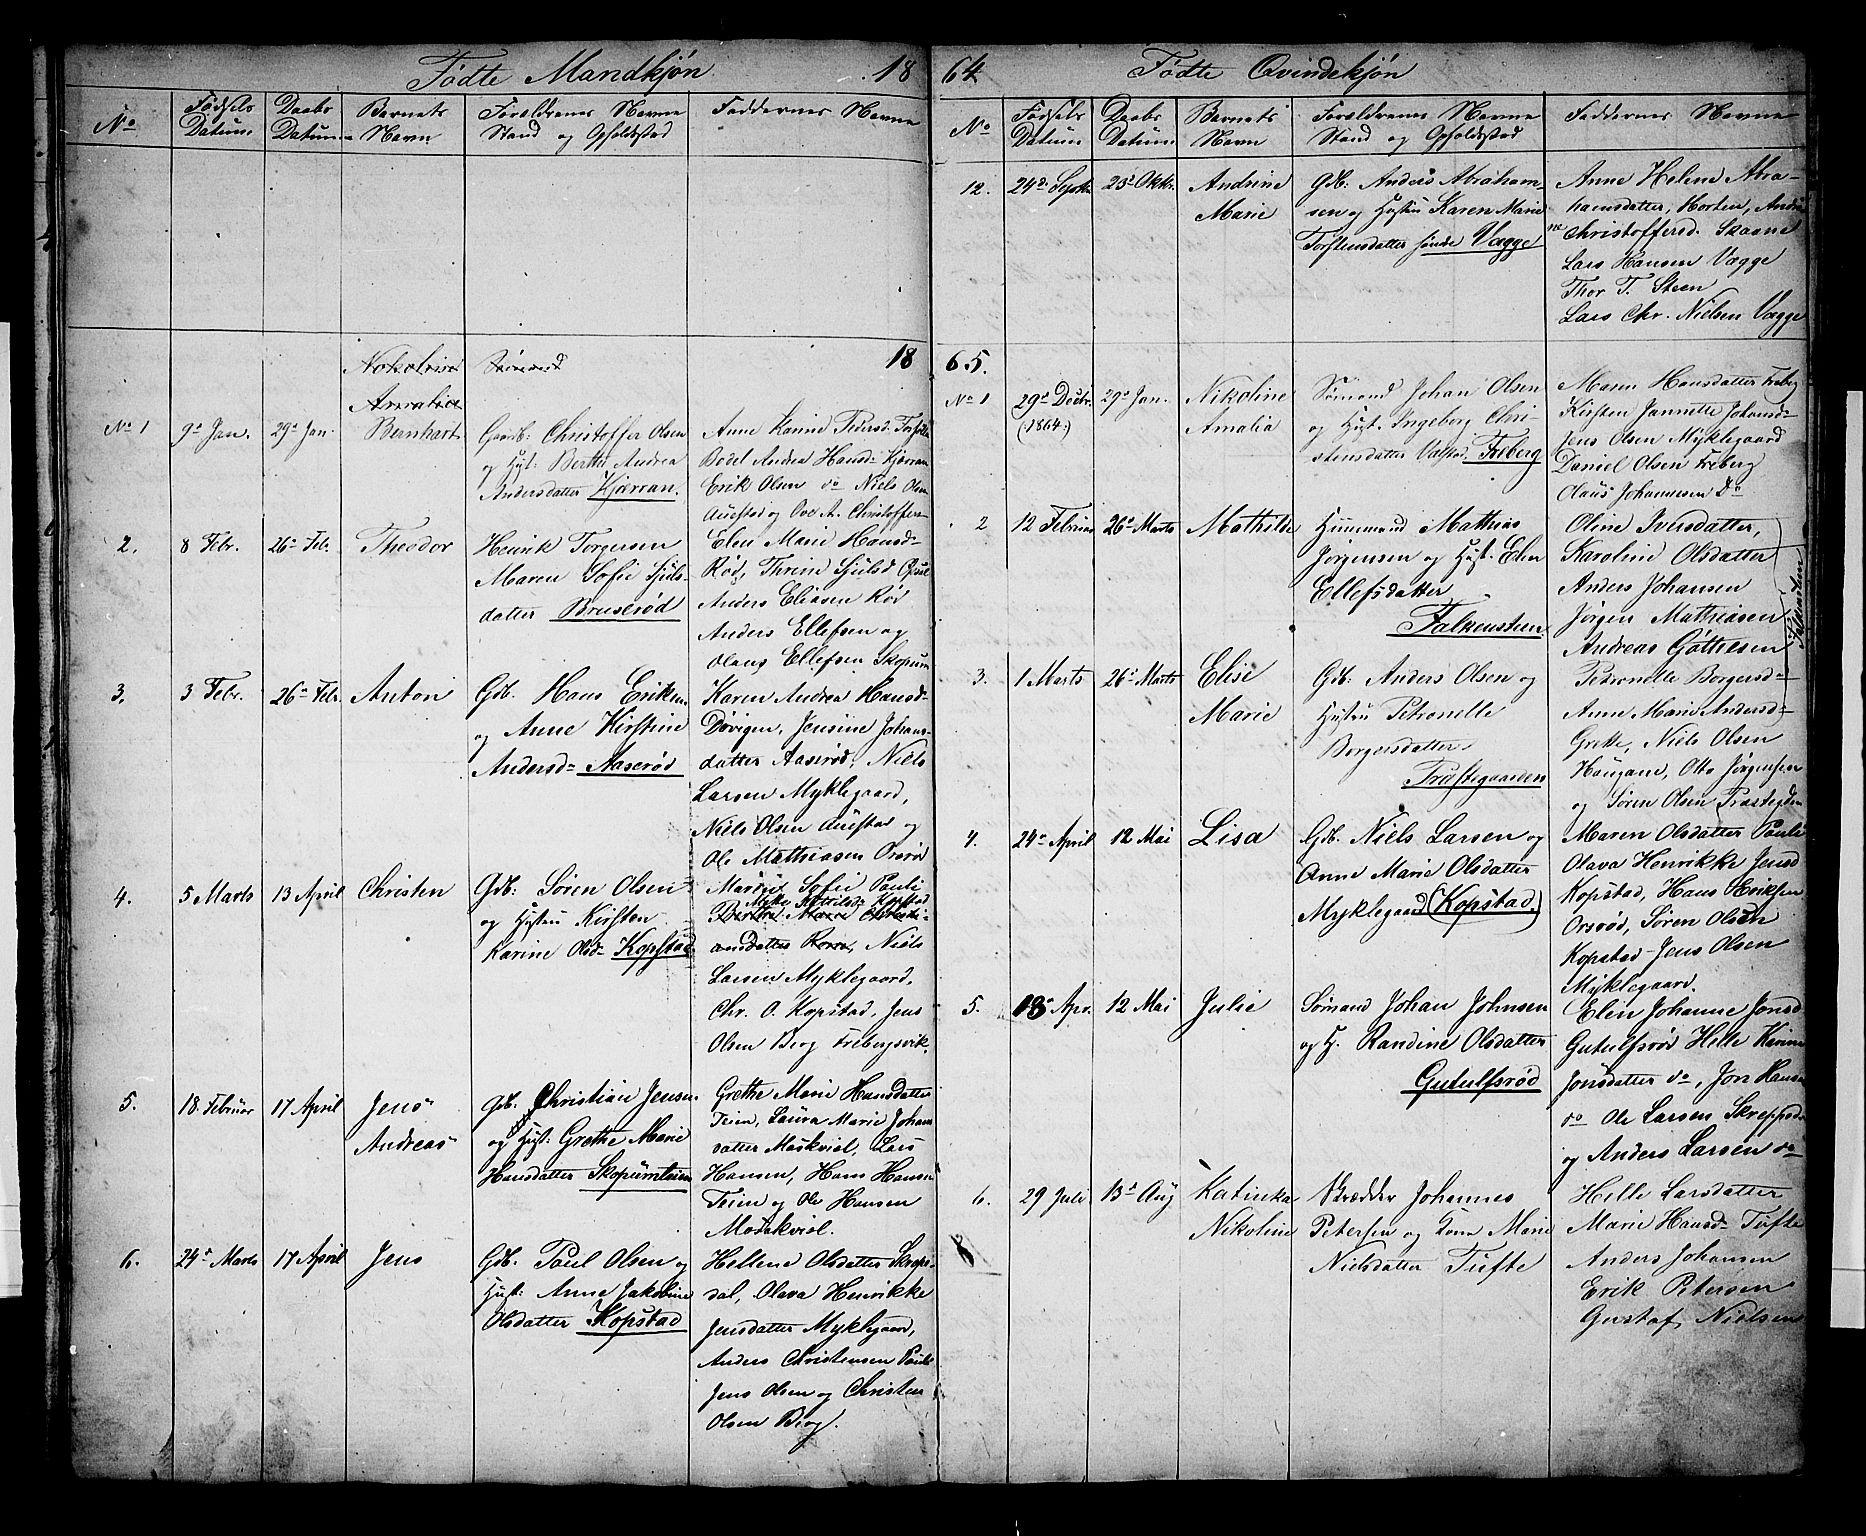 Födte Mandkjøn 18
No
Födsels Datum
Daabs Datum
Barnets Navn
Forældrenes Navne Stand og Opholdsted
Faddernes Navne
18
Nikoline Sømand
Amalia
No 1
9d Jan.
29d Jan.
Bernhart
Gaardb: Christoffer Olsen
og Hust: Berthe Andrea
Andersdatter Kjærran.
Anne Karine Pedersd.
Bodel Andrea Hansd. Kjærran
Erik Olsen do Niels Olsen
Auestad og Ove A. Christoffers
2.
8 Febr.
26d Feb.
Theodor
Henrik Torgersen
Maren Sofie Sjuls-
datter Bruserød
Elen Marie Hansd-
Rød, Thrine Sjulsd
Anders Eliasen Rød
Anders Ellefsen og
Olaus Ellefsen Skopum
3.
3 Febr.
26d Febr.
Anton
Gdb. Hans Eriksen
og Anne Kirstine
Andersd- Aaserød
Karen Andrea Hansd-
Dövigen, Jensine Johans-
datter Aaserød, Niels
Larsen Myklegaard,
Niels Olsen Auestad og
Ole Mathiasen Orsrød
4.
5 Marts
13 April
Christen
Gdb: Søren Olsen
og Hustru Kirsten
Karine Olsd- Kopstad
Sofie Pauli
Berthe Marie Christi-
ansdatter Rørre, Niels
Larsen Myklegaard,
Chr. O. Kopstad, Jens
Olsen Berg Frebergsvik.
5.
18. Februar
17 April
Jens
Andreas
Gdb. Christian Jensen
og Hust: Grethe Marie
Hansdatter Skopumteien
Grethe Marie Hansdatter
Teien, Laura Marie Johans
datter Møskviel, Lars
Hansen, Hans Hansen
Teien og Ole Hansen
Møskviel.
6.
24d Marts
17 April
Jens
Gdb. Paul Olsen og
Hust: Anne Jakobine
Olsdatter Kopstad
Hellene Olsdatter Skreps-
dal, Olava Henrikke
Jensdatter Myklegaard,
Anders Christensen Pauli
Jens Olsen og Christen
Olsen Berg.
64 Födte Qvindekjön
No
Födsels Datum
Daabs Datum
Barnets Navn
Forældrenes Navne Stand og Opholdsted
Faddernes Navne
12.
24d Septr.
23d Oktr.
Andrine
Marie
Gdb: Anders Abraham-
sen og Hustru Karen Marie
Torstensdatter søndre Vægge
Anne Helene Abra-
hamsdatter, Horten, Andri
ne Christoffersd. Skaane
Lars Hansen Vægge
Thor T. Steen
Lars Chr. Nielsen Vægge
65.
No 1
29d Decbr.
(1864.)
29d Jan.
Nikoline
Amalia
Sømand Johan Olsen
og Hust. Ingeborg Chri-
stensdatter Valstad. Freberg
Maren Hansdatter Freberg
Kirsten Jannette Johansd-
Jens Olsen Myklegaard
Daniel Olsen Freberg
Claus Johannesen Do
2
12 Februar
26d Marts
Mathilde
Huusmand Mathias
Jørgensen og Hust. Elen
Ellefsdatter
Falkensteen
Oline Iversdatter,
Karoline Olsdatter
Anders Johansen
Jørgen Mathiasen
Andreas Göthesen
3.
1 Marts
26d Marts
Elise
Marie
Gdb. Anders Olsen og
Hustru Petronelle
Borgersdatter
Præstegaarden
Petronelle Borgersd-
Anne Marie Andersd-
Grette, Niels Olsen
Haugane, Otto Jørgensen
og Søren Olsen Præstegden
4.
24d April
12 Mai
Lisa
Gdb. Niels Larsen og
Anne Marie Olsdatter
Myklegaard (Kopstad)
Maren Olsdatter Pauli
Olava Henrikke Jensd
Kopstad, Hans Eriksen
Orsrød, Søren Olsen
Kopstad Jens Olsen
Myklegaard.
5.
18d Apr.
12 Mai
Julie
Sømand Johan Johnsen
og H. Randine Olsdatter
Gutulfsrød
Elen Johanne Jonsd
Gutulfsrød Helle Karine
Jonsdatter do, Jon Hansen
do Ole Larsen Skreppsd
og Anders Larsen do
6.
29 Juli
13d Aug
Katinka
Nikoline
Skrædder Johannes
Petersen og Kone Marie
Nielsdatter Tufte
Helle Larsdatter
Marie Hansd- Tufte
Anders Johansen
Erik Petersen
Gustaf Nielsen